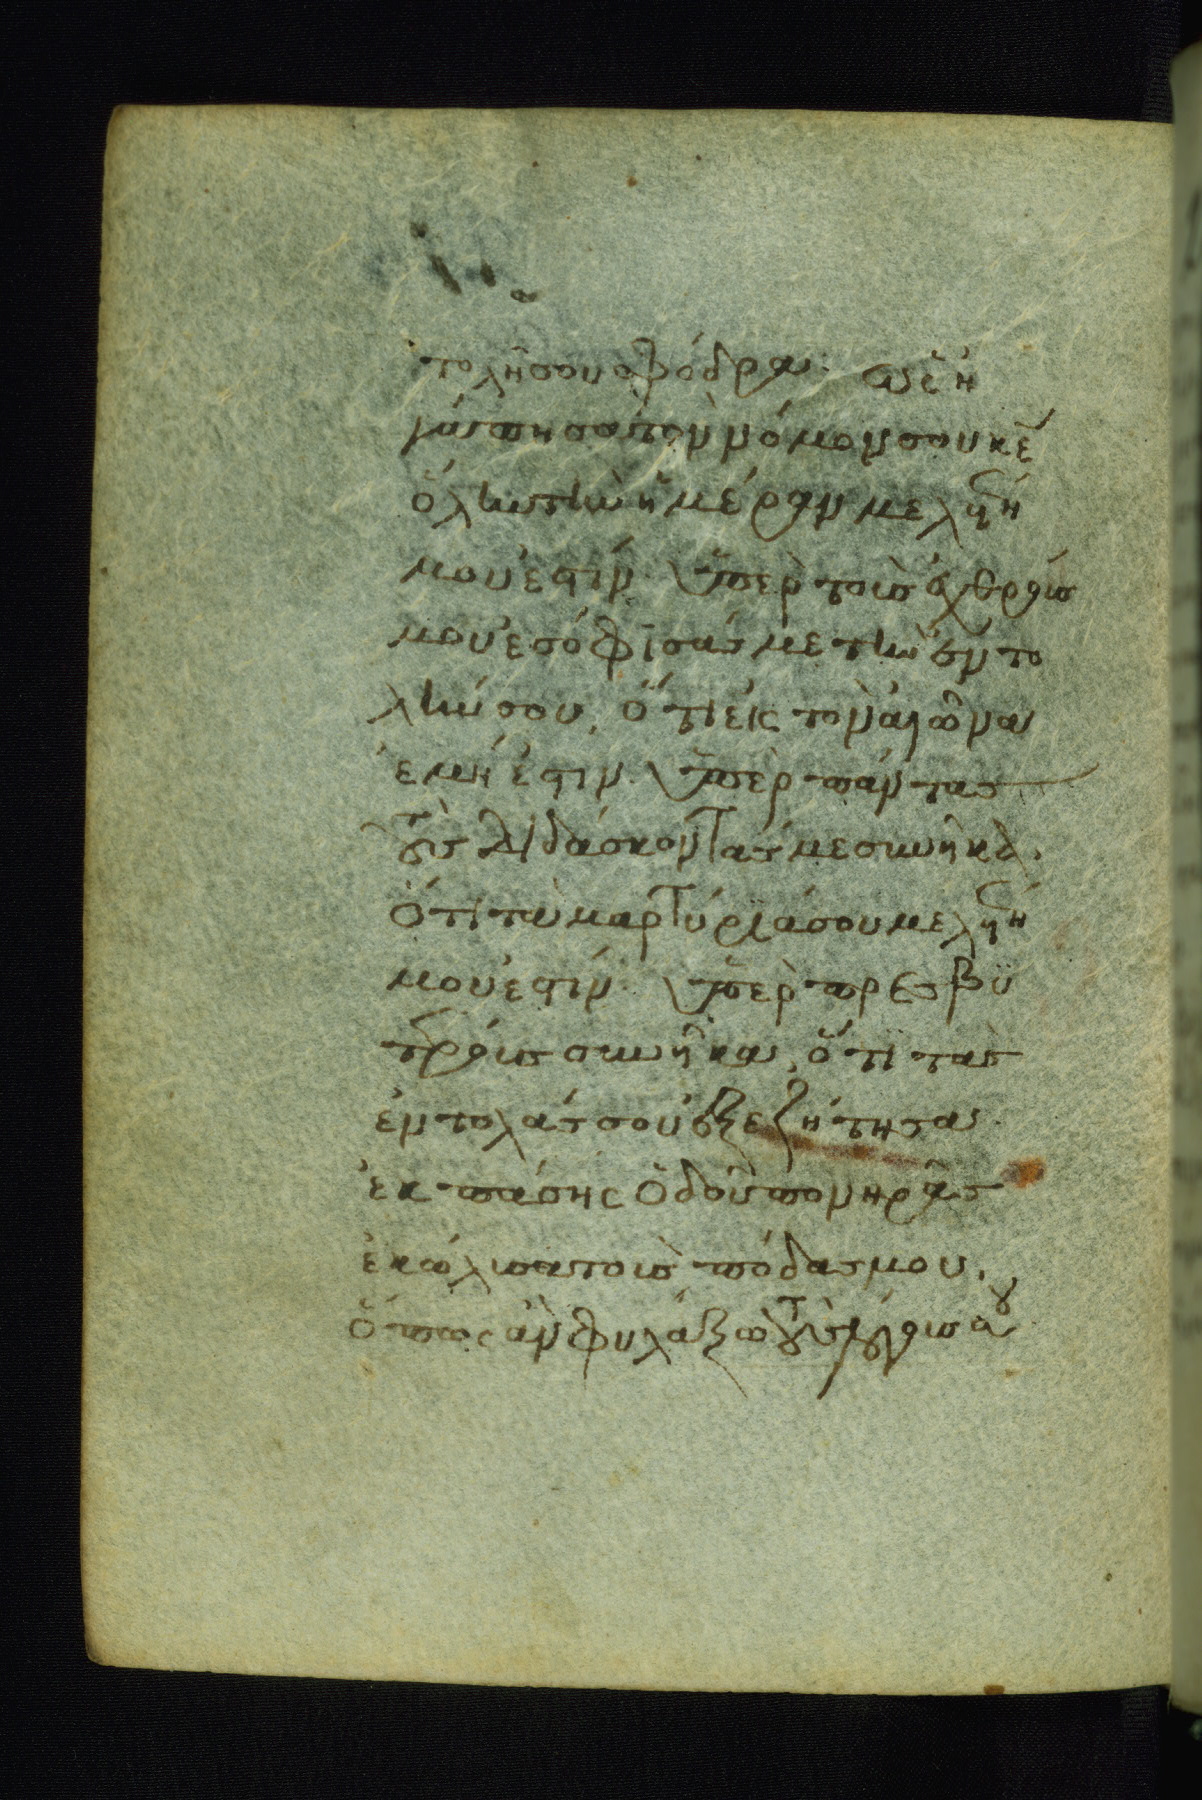 τολήσου σφόδρα. Ὡς ἠ
γάπησα τὸν νόμον σου κε̅
ὅλην τὴν ἡμέραν μελέτη
μου ἐστίν. Ὑπὲρ τοὺς ἐχθρούς
μου ἐσόφισάς με τὴν ἐντο
λήν σου, ὅτι εἰς τὸν αἰῶνα
ἐμή ἐστιν. Ὑπὲρ πάντας
τοὺς διδάσκοντάς με συνῆκα.
Ὅτι τὰ μαρτύριά σου μελέτη
μου ἐστίν. Ὑπὲρ πρεσβυ
τέρους συνῆκα, ὅτι τὰς
ἐντολάς σου ἐξεζήτησα.
ἐκ πάσης ὁδοῦ πονηρᾶς
ἐκώλυσα τοὺς πόδας μου.
Ὅπως ἂν φυλάξω τοὺς λόγους σου